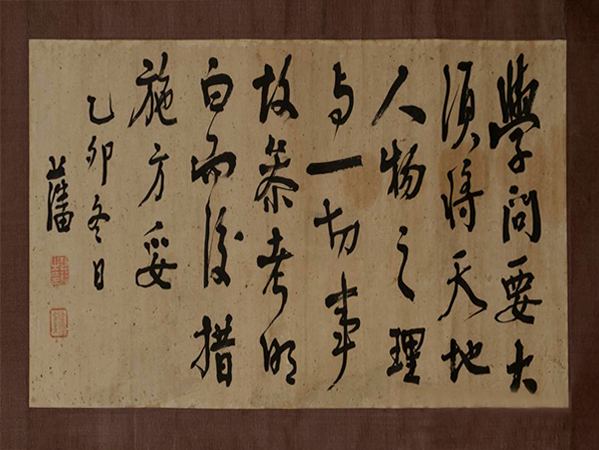 學問要大
須將天地
人物之理
与一切事
故叅考明
白而後措
施方妥
乙卯冬日
藩